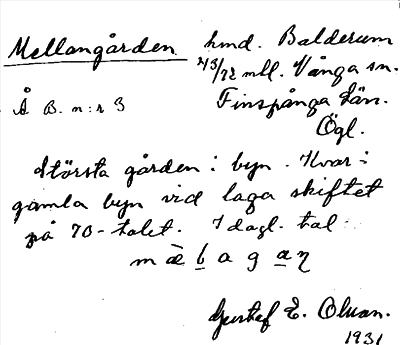 Mellangården hmd. Balderum
23/72 mtl. Vånga sn.
Å B. n:r 3 Finspånga län.
Ögl.
Största gården i byn. Kvar i
gamla byn vid laga skiftet
på 70-talet. I dagl. tal:
Gustaf E. Olsson.
1931